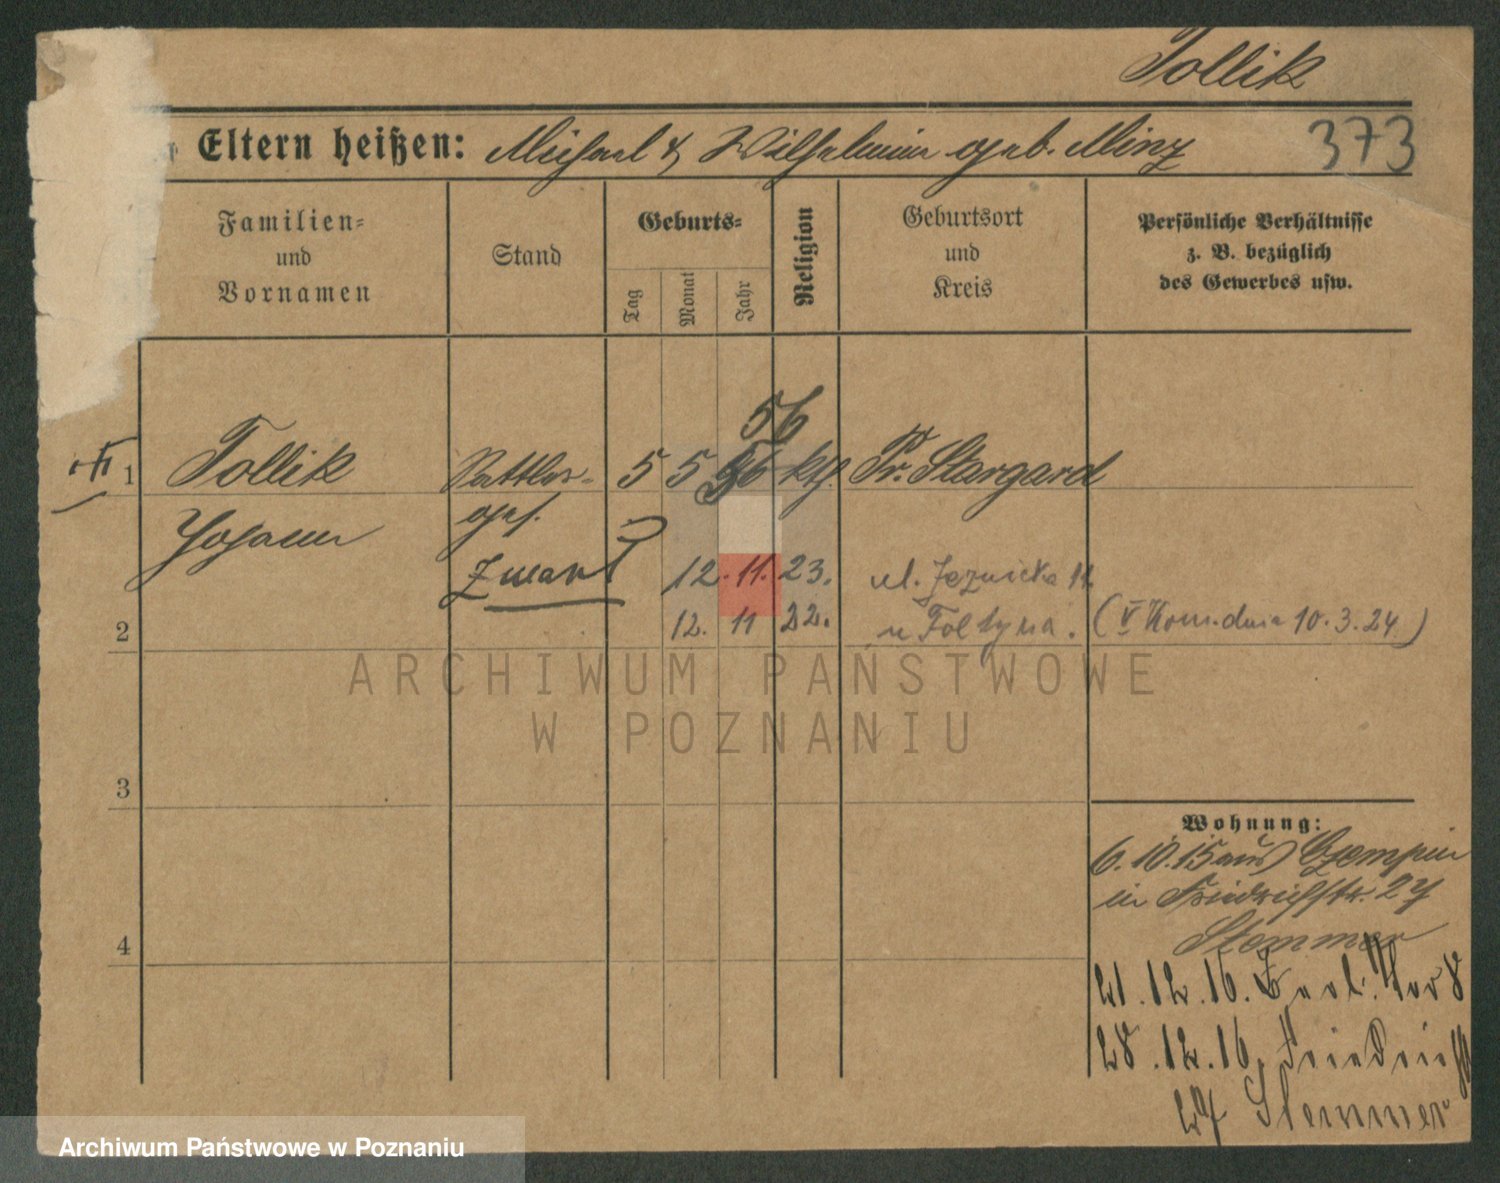 Tollik
Eltern heißen: Michael & Wilhelmine geb. Minz 373
Familien- und Vornamen
Stand
Geburts-
Tag
Monat
Jahr
Religion
Geburtsort und Kreis
Persönliche Verhältnisse z. B. bezüglich des Gewerbes usw.
56
1 Tollik Sattler- 5 5 56 kth. Pr. Stargard
Johann ges.
Zmarł 12. 11. 23. ul. Jezuicka 11.
2 12. 11 22. u Foltyna. (V Kom. dnia 10.3.24)
ARCHIWUM PAŃSTWOWE
W POZNANIU
3
Wohnung:
6.10.15 aus Czempin
in Friedrichstr. 27
Stemmer
4
21.12.16. Berl.
28.12.16. Friedrichst
27 Stemmer
Archiwum Państwowe w Poznaniu